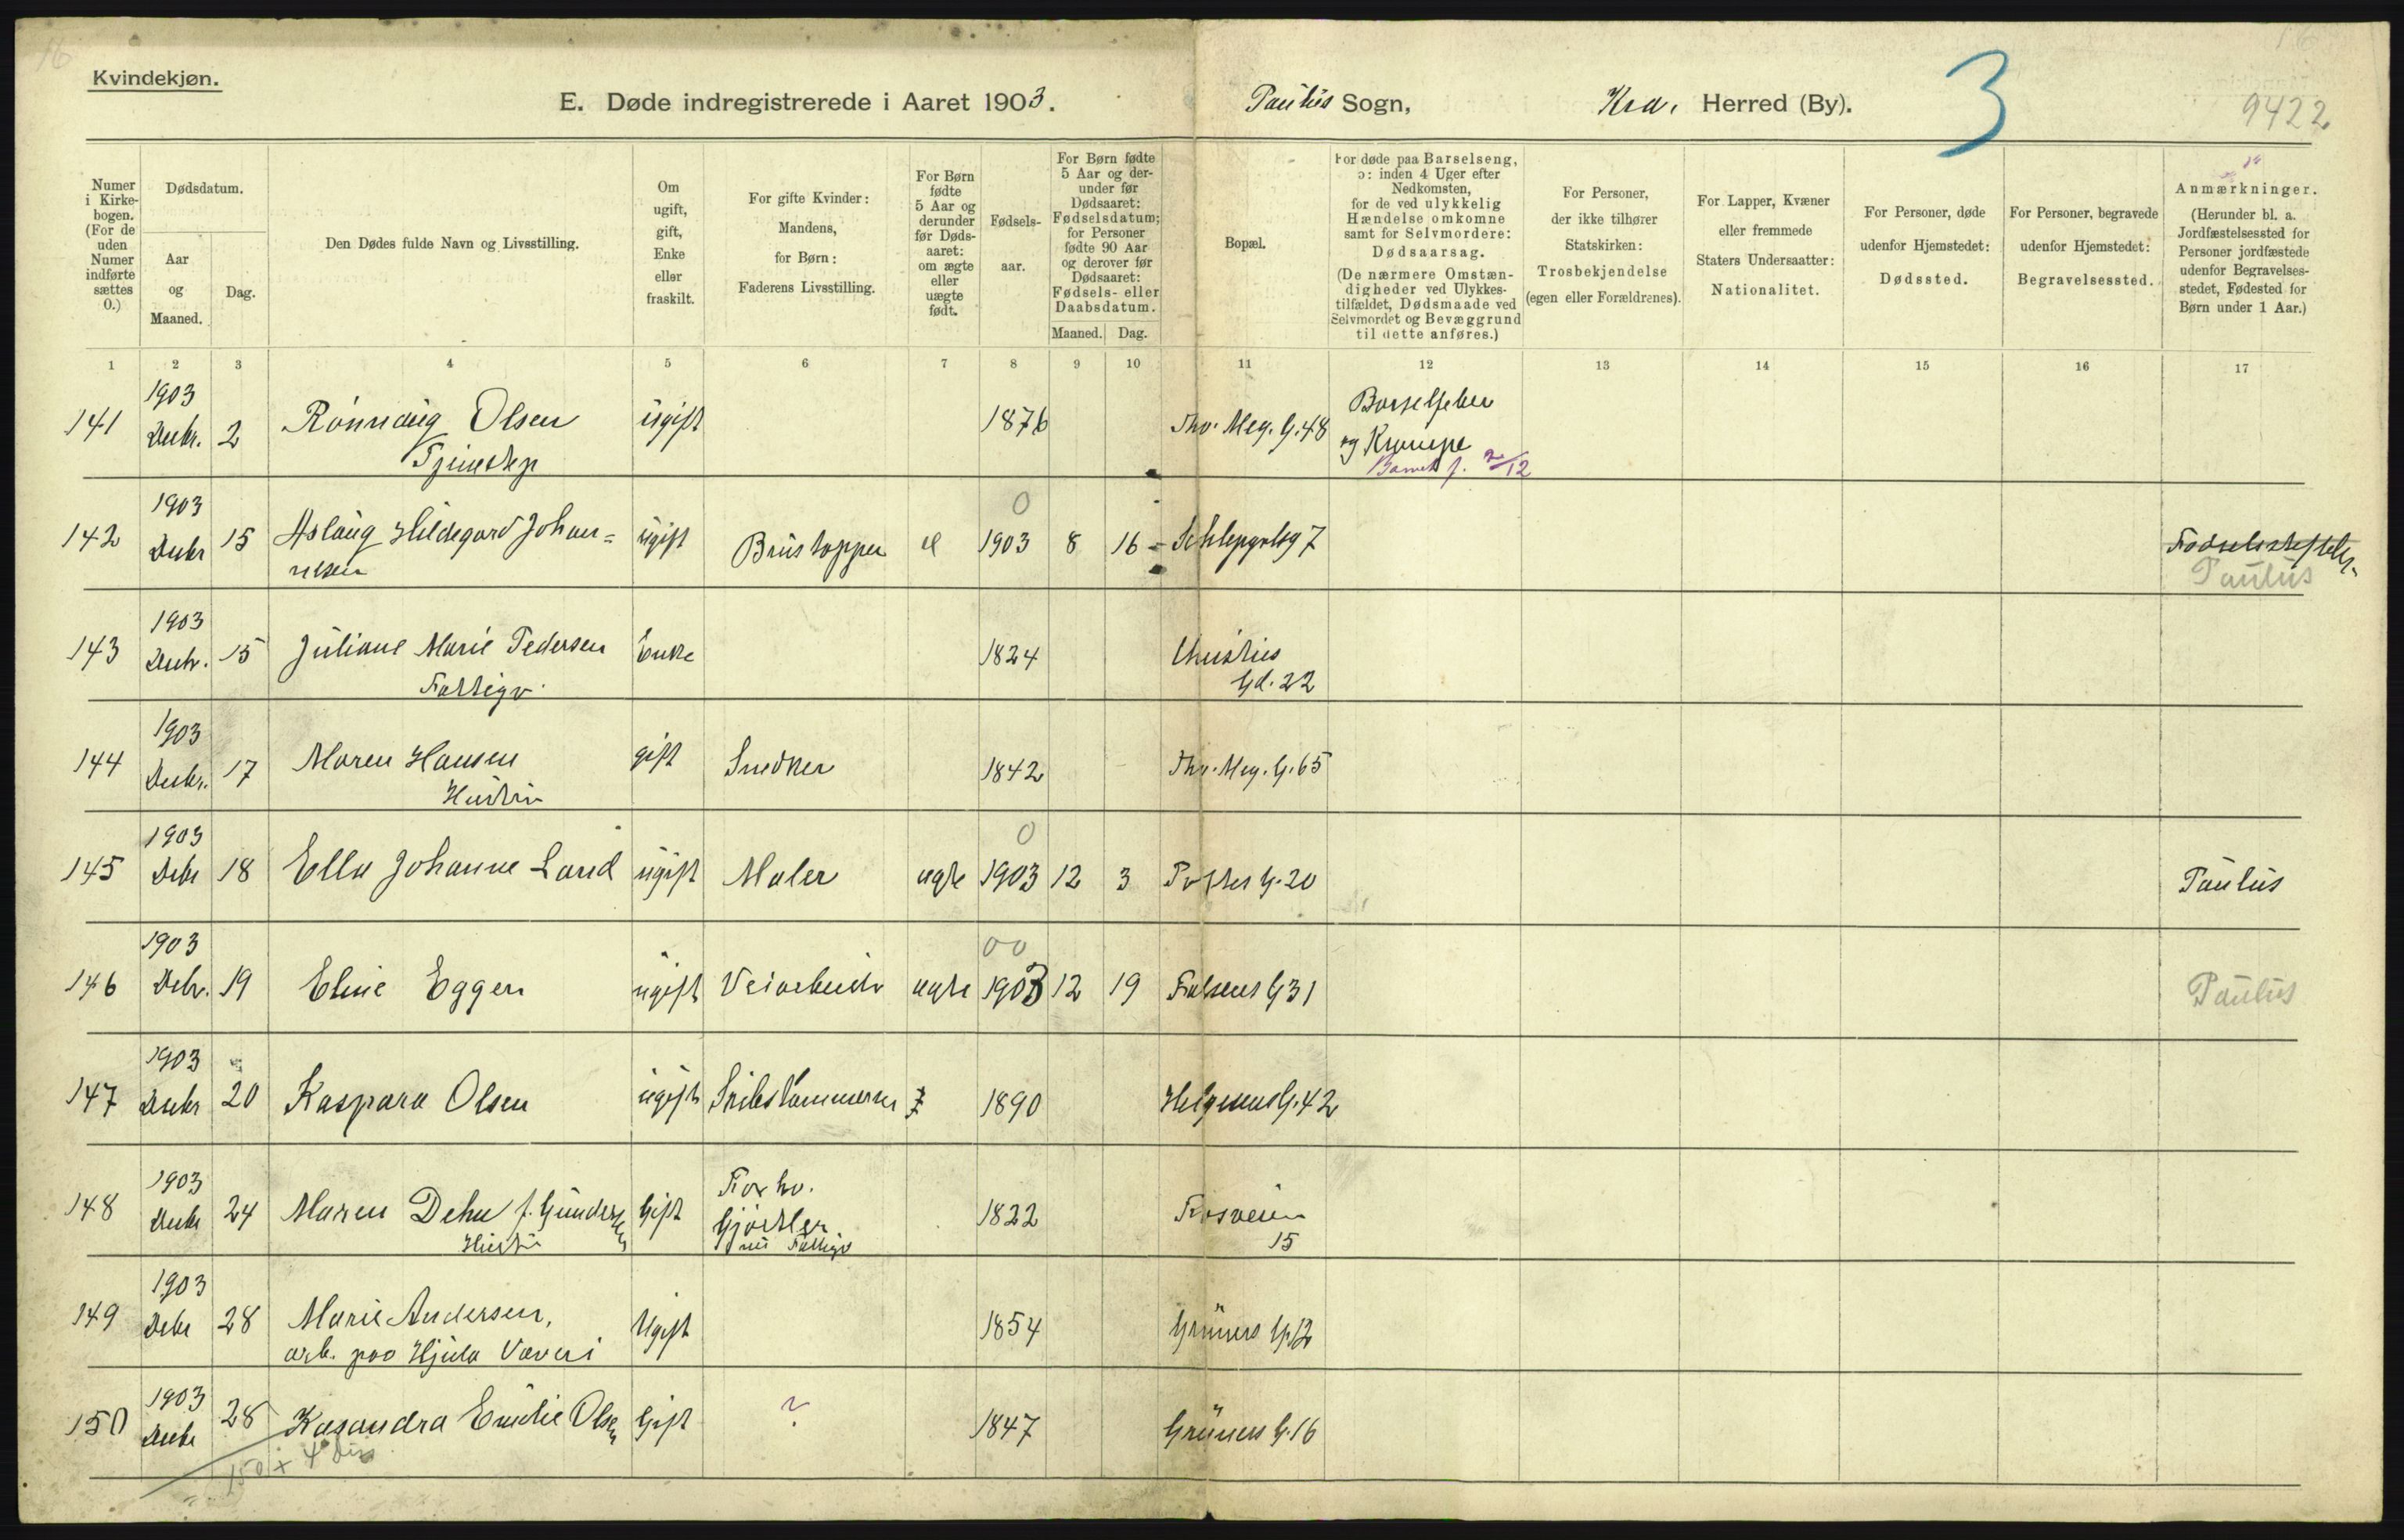 16
16
Kvindekjøn.
E. Døde indregistrerede i Aaret 1903.
Paulus Sogn,
Kra. Herred (By).
3
9422
Numer i Kirkebogen. (For de uden Numer indførte sættes 0.)
Dødsdatum.
Aar og Maaned.
Dag.
Den Dødes fulde Navn og Livsstilling.
Om ugift, gift, Enke eller fraskilt.
For gifte Kvinder: Mandens, for Børn: Faderens Livsstilling.
For Børn fødte 5 Aar og derunder før Dødsaaret: om ægte eller uægte født.
Fødselsaar.
For Børn fødte 5 Aar og derunder før Dødsaaret: Fødselsdatum; for Personer fødte 90 Aar og derover før Dødsaaret: Fødsels- eller Daabsdatum.
Maaned. Dag.
Bopæl.
For døde paa Barselseng, ɔ: inden 4 Uger efter Nedkomsten, for de ved ulykkelig Hændelse omkomne samt for Selvmordere: Dødsaarsag. (De nærmere Omstændigheder ved Ulykkestilfældet, Dødsmaade ved Selvmordet og Bevæggrund til dette anføres.)
For Personer, der ikke tilhører Statskirken: Trosbekjendelse (egen eller Forældrenes).
For Lapper, Kvæner eller fremmede Staters Undersaatter: Nationalitet.
For Personer, døde udenfor Hjemstedet: Dødssted.
For Personer, begravede udenfor Hjemstedet: Begravelsessted.
Anmærkninger. (Herunder bl. a. Jordfæstelsessted for Personer jordfæstede udenfor Begravelsesstedet, Fødested for Børn under 1 Aar.)
1 2 3 4 5 6 7 8 9 10 11 12 13 14 15 16 17
141 1903 Decbr. 2 Rønnaug Olsen ugift 1876 Thv. Mey. G. 48 Barselfeber
Tjenestep og Krampe
Barnet f. 2/12
142 1903 Decbr 15 Aslaug Hildegard Johan= ugift Brustapper 1903 8 16 Schleppegrelsg 7
nesen 0 Paulus
143 1903 Decbr. 15 Juliane Marie Pedersen Enke 1824 Christies
Fattigv. Gd. 22
144 1903 Decbr. 17 Maren Hansen gift Snedker 1842 Thv. Mey. G. 65
Hustru
145 1903 Debr 18 Ella Johanne Lund ugift Maler ægte 1903 12 3 Fosses G. 20 Paulus
0
146 1903 Debr. 19 Eline Eggen ugift Veiarbeider ægte 1903 12 19 Falsens G 31 Paulus
00
147 1903 Decbr 20 Kaspara Olsen ugift Skibstømmerm 1890 Helgesens G. 42
148 1903 Decbr 24 Maren Dehn f. Gundersen Gift Forhv. 1822 Fosveien
Hustru Gjørtler 15
nu Fattigv
149 1903 Debr 28 Marie Andersen, Ugift 1854 Grüners G. 12
arb. paa Hjula Væveri
150 1903 Decbr 28 Kasandra Emilie Olsen Gift ? 1847 Grüners G. 16
150 + 4